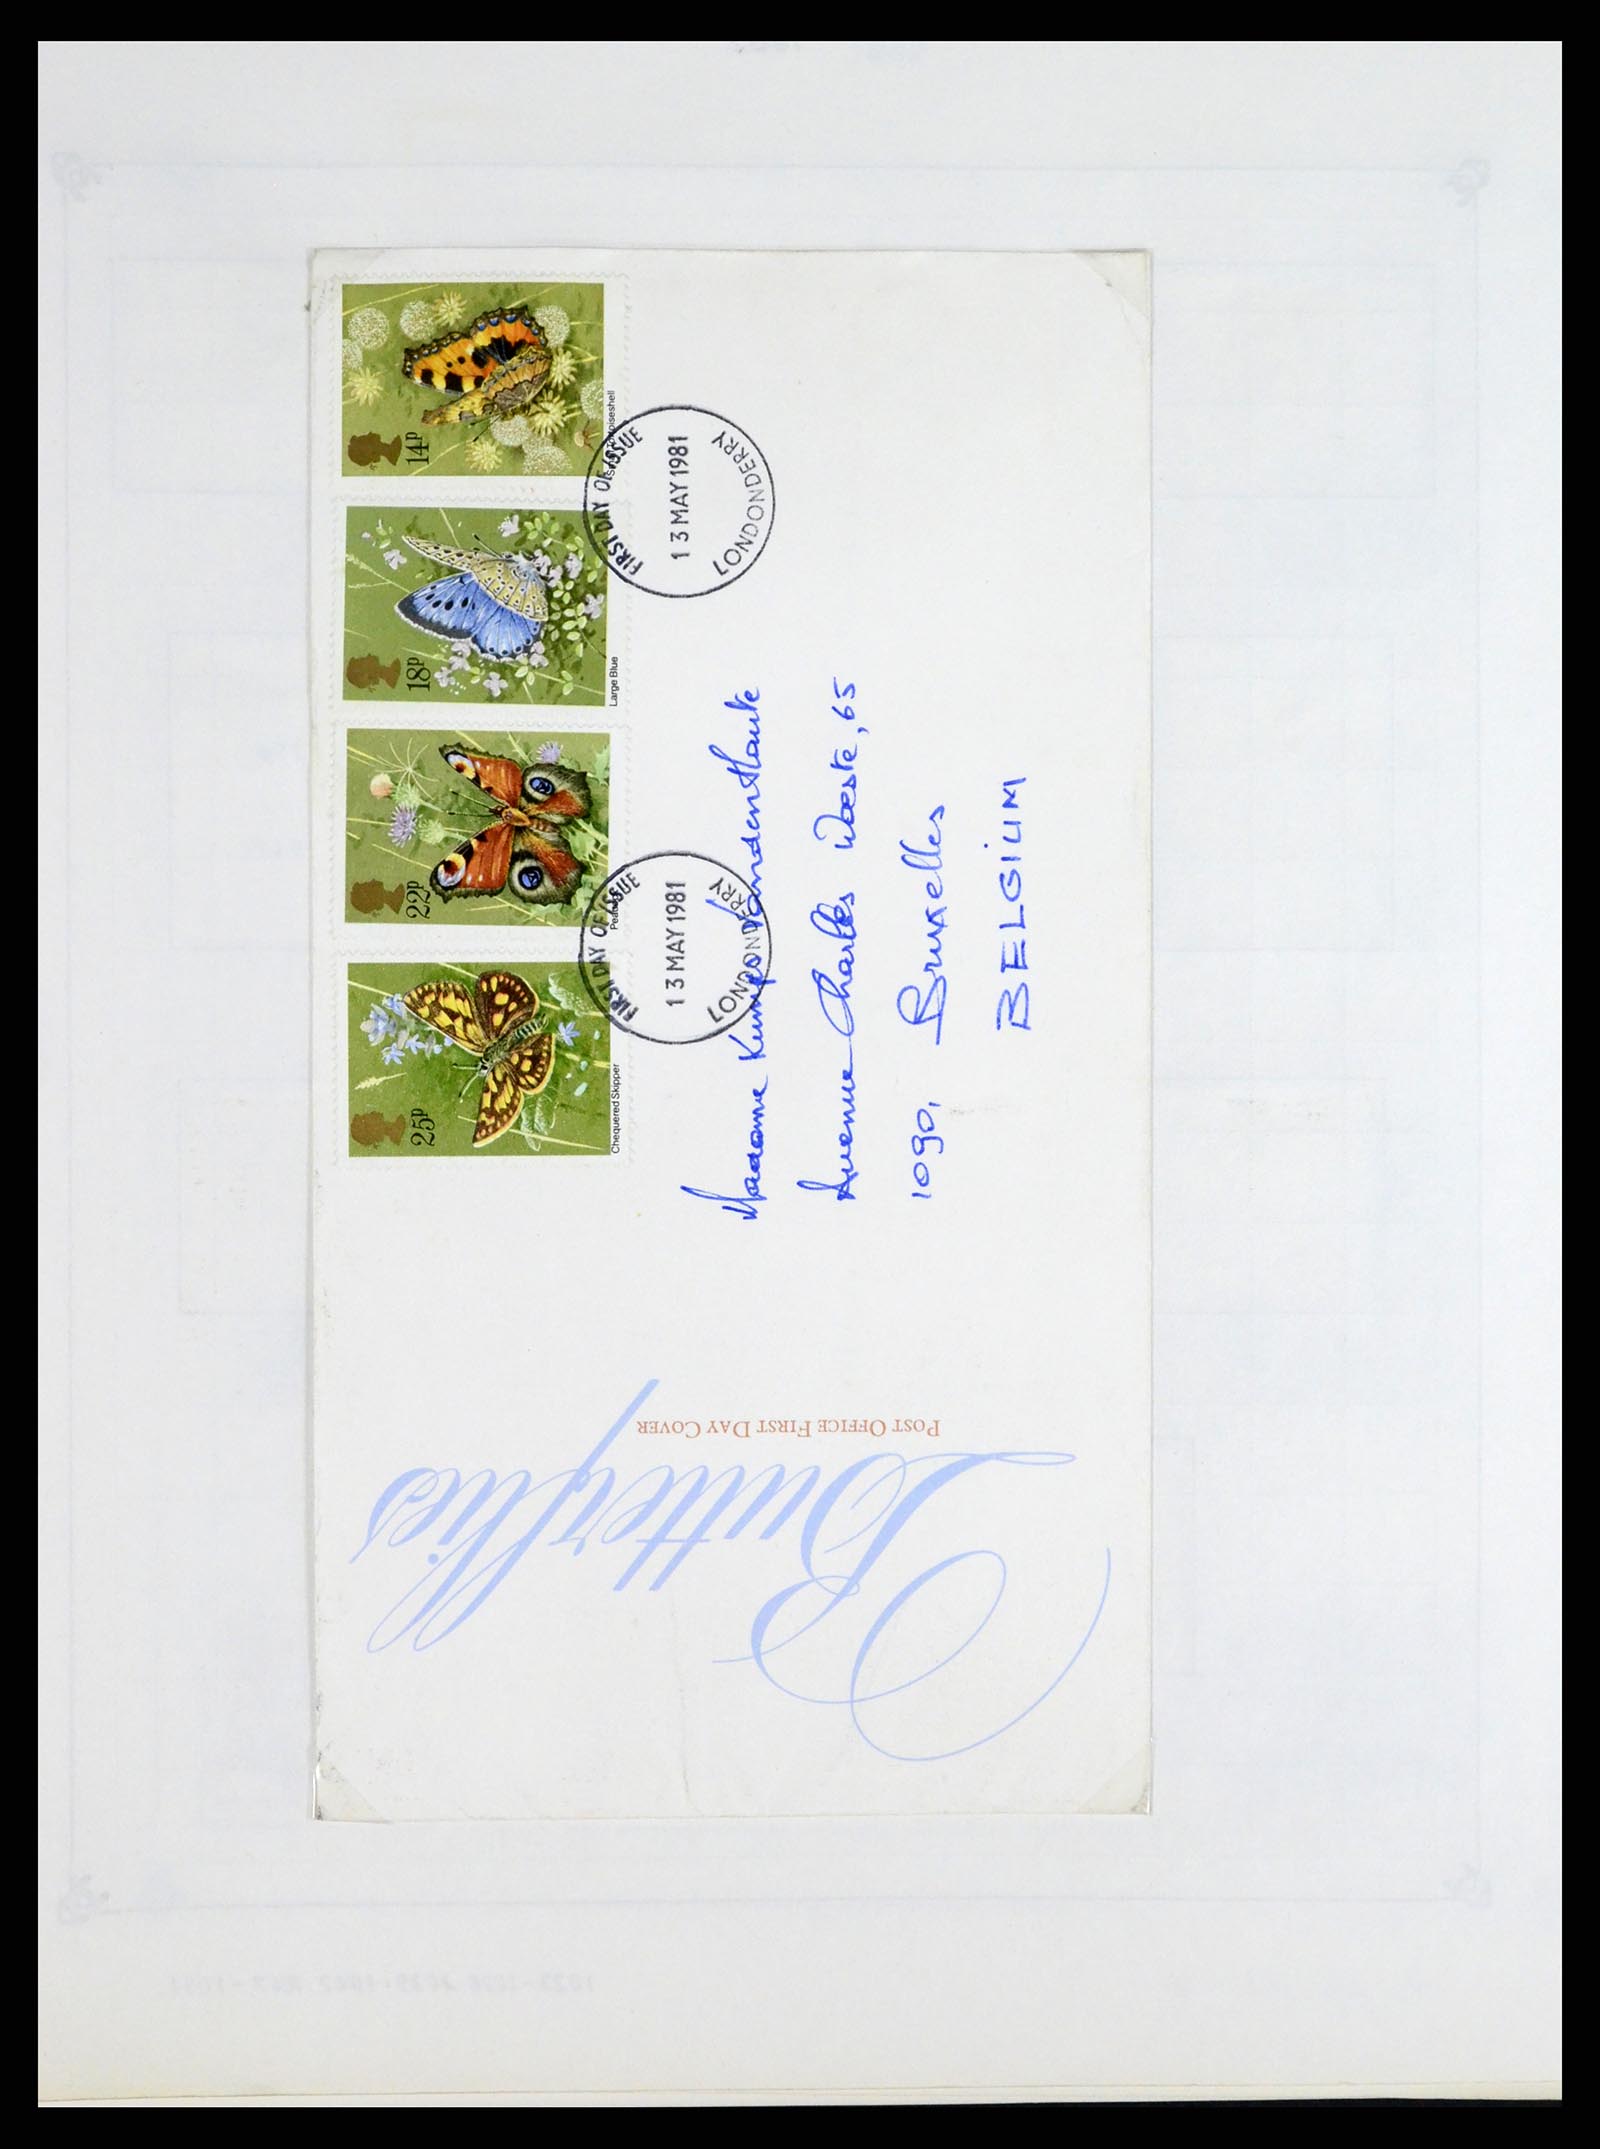 14p
Small Tortoiseshell
18p
Large Blue
22p
Peacock
25p
Chequered Skipper
FIRST DAY OF ISSUE
13 MAY 1981
LONDONDERRY
FIRST DAY OF ISSUE
13 MAY 1981
LONDONDERRY
Madame
Avenue Charles Woeste, 65
1090, Bruxelles
BELGIUM
POST OFFICE FIRST DAY COVER
Butterflies